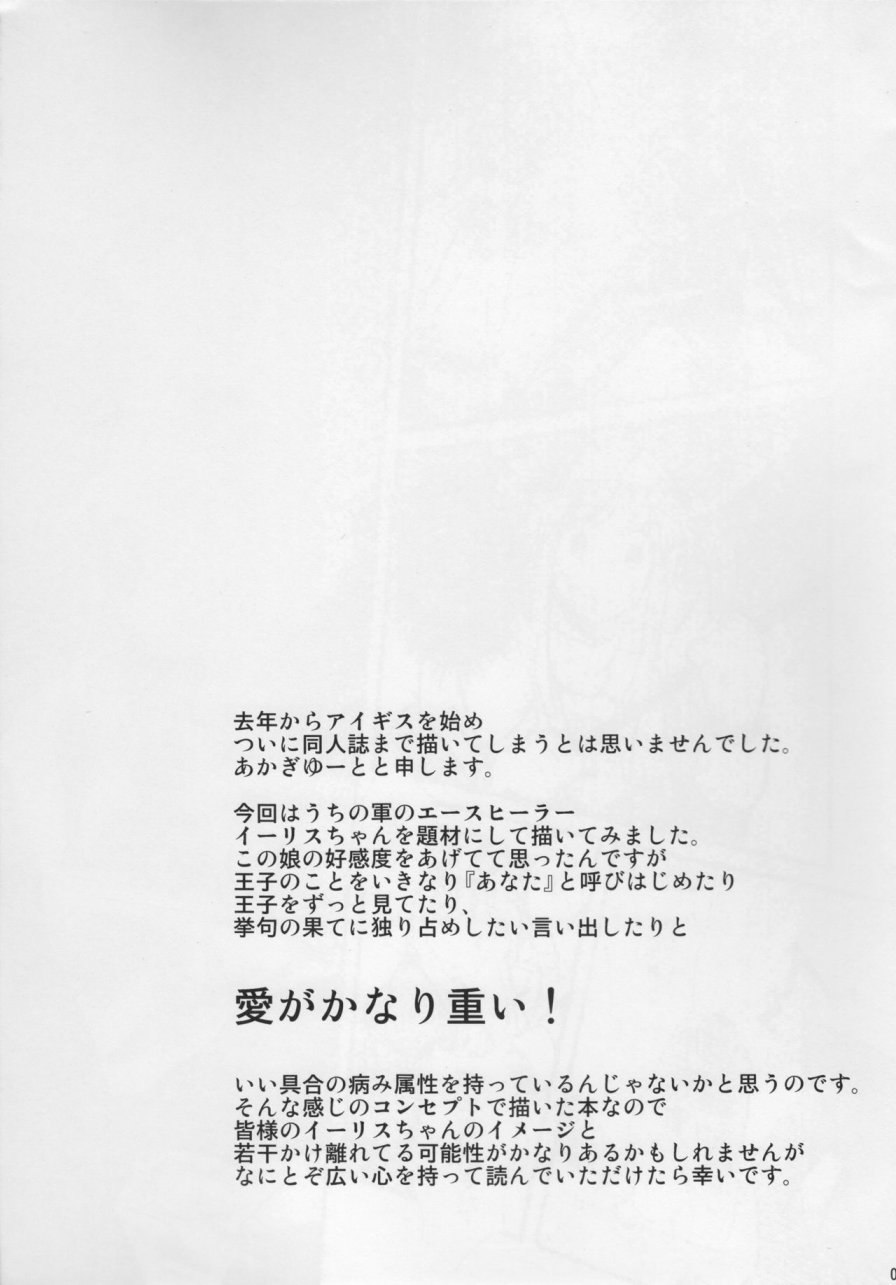 去年からアイギスを始め
ついに同人誌まで描いてしまうとは思いませんでした。
あかぎゆーとと申します。
今回はうちの軍のエースヒーラー
イーリスちゃんを題材にして描いてみました。
この娘の好感度をあげてて思ったんですが
王子のことをいきなり『あなた』と呼びはじめたり
王子をずっと見てたり、
挙句の果てに独り占めしたい言い出したりと
愛がかなり重い！
いい具合の病み属性を持っているんじゃないかと思うのです。
そんな感じのコンセプトで描いた本なので
皆様のイーリスちゃんのイメージと
若干かけ離れてる可能性がかなりあるかもしれませんが
なにとぞ広い心を持って読んでいただけたら幸いです。